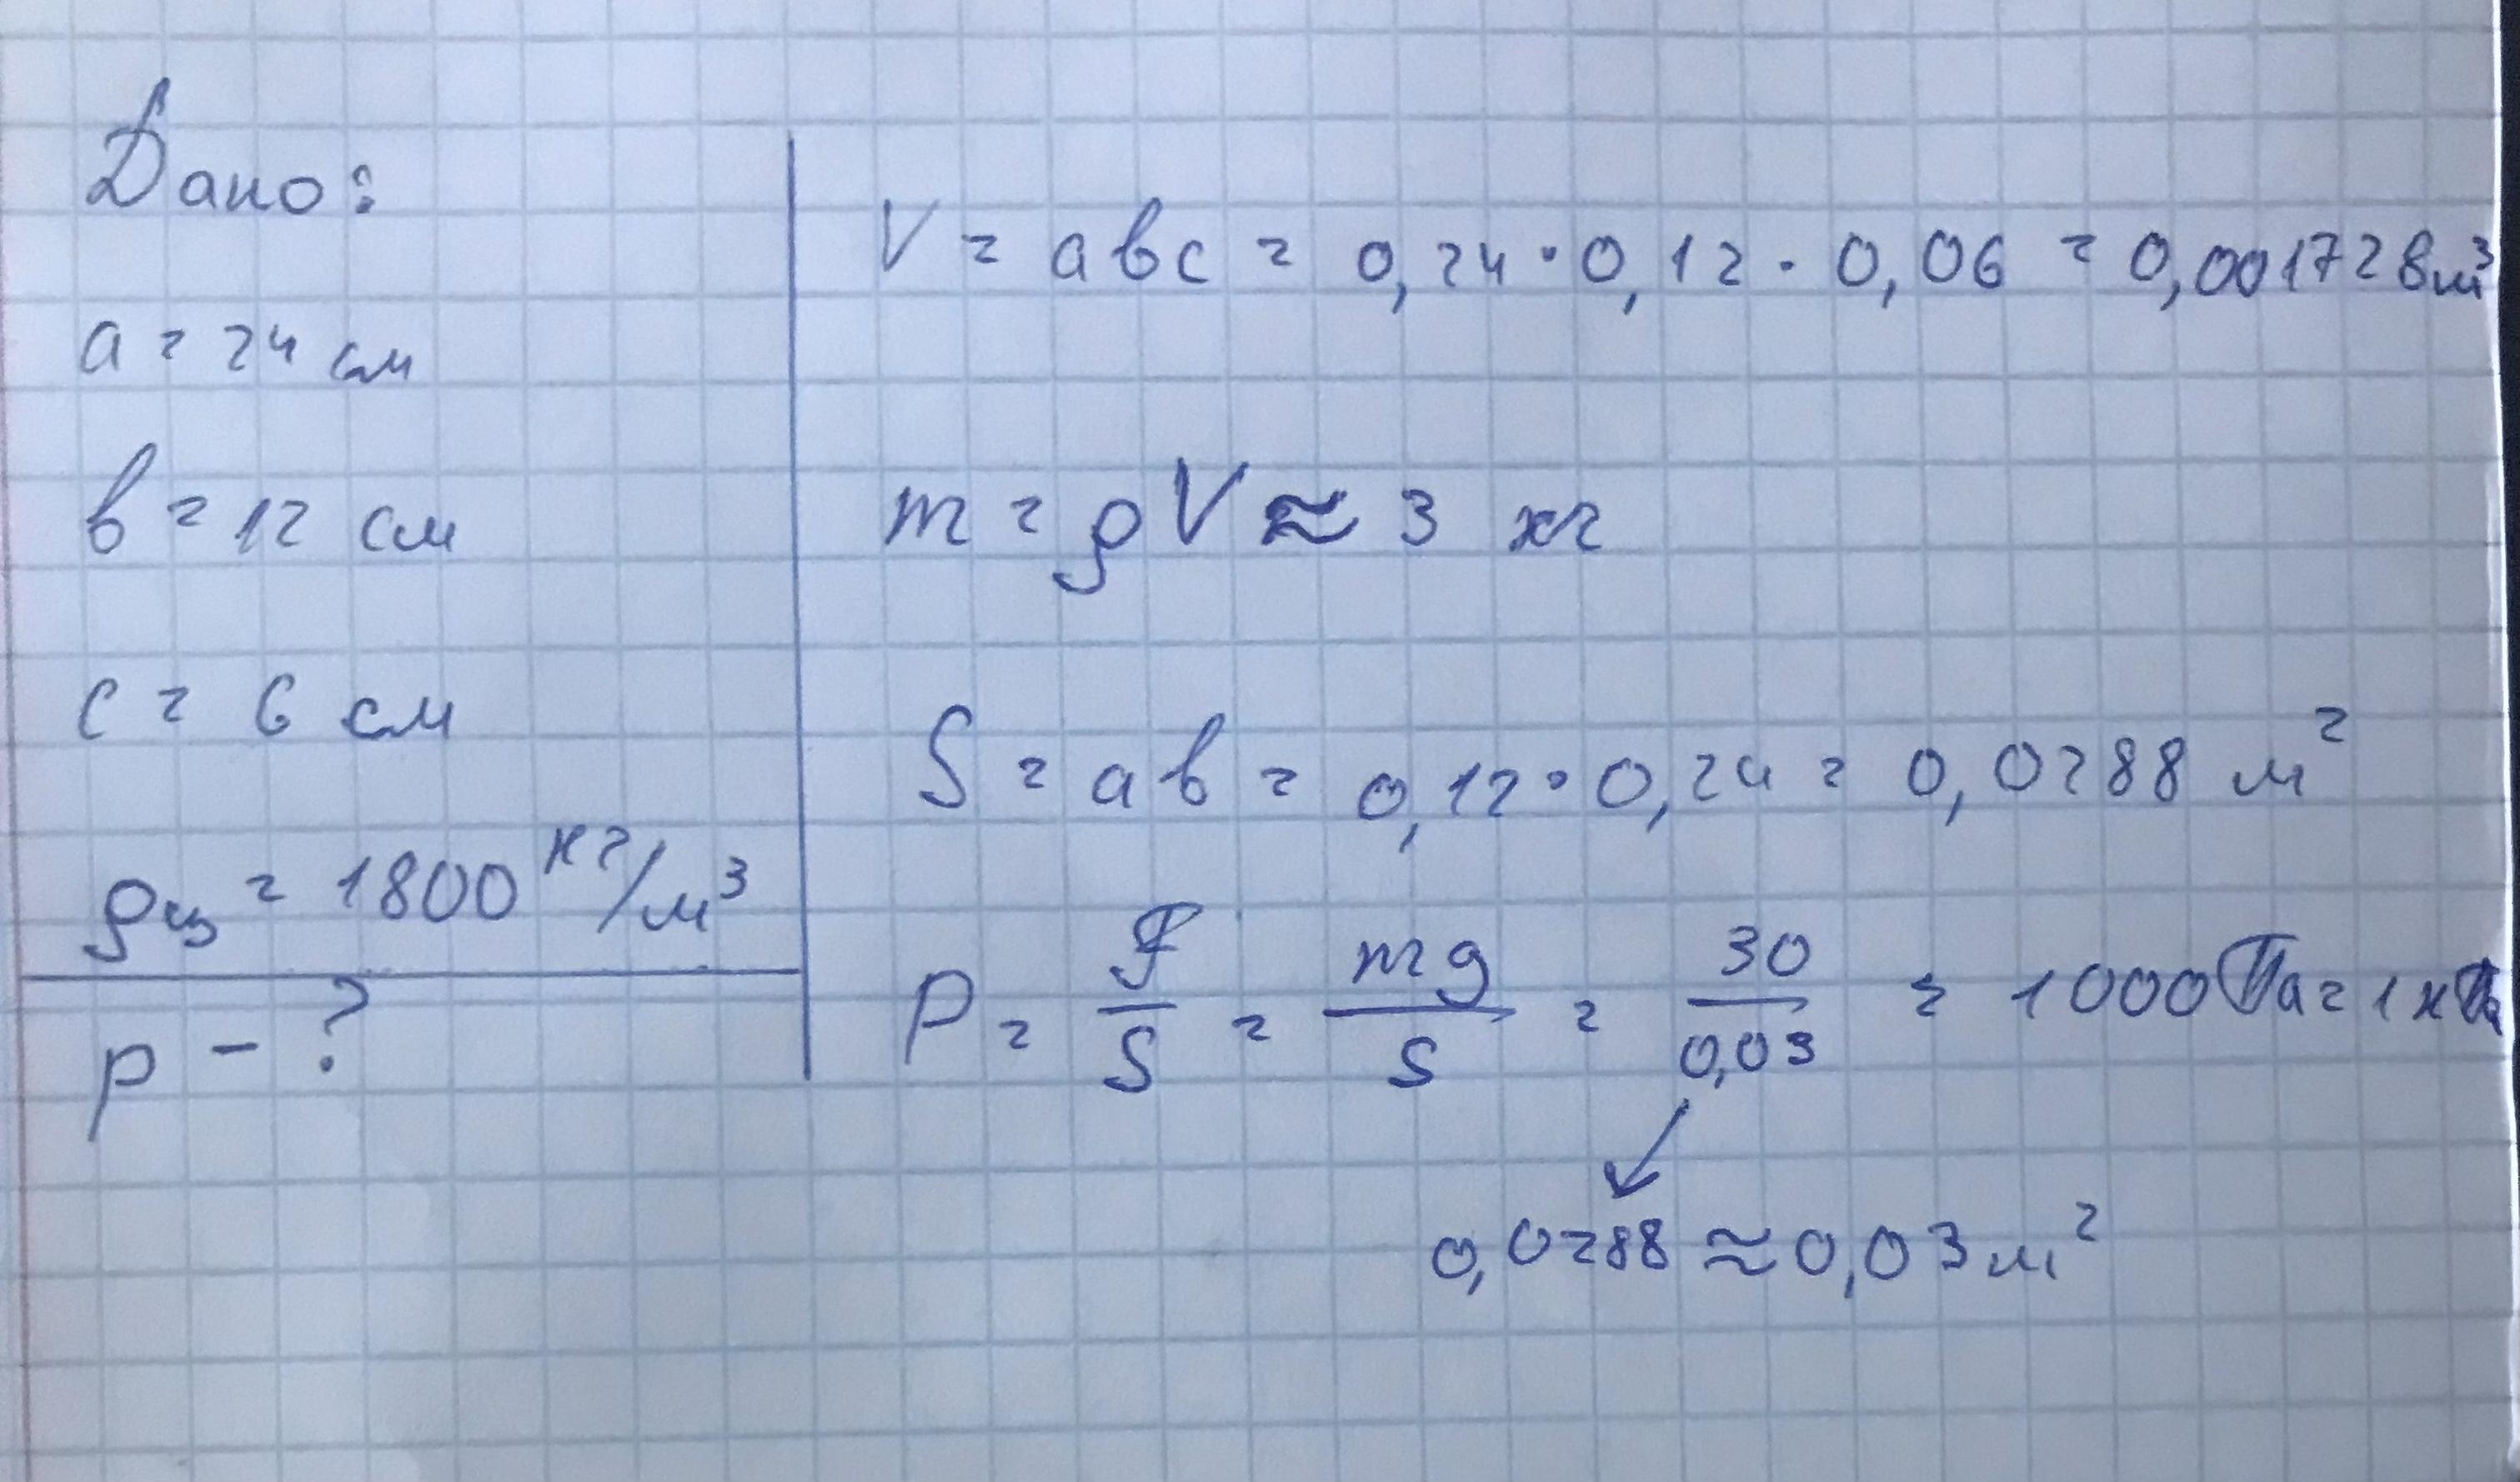 Дано:
a = 24 см
в = 12 см
с = 6 см
ρц = 1800 кг/м³
p - ?
V = aвc = 0,24 · 0,12 · 0,06 = 0,001728 м³
m = ρV ≈ 3 кг
S = aв = 0,12 · 0,24 = 0,0288 м²
P = F/S = mg/S = 30/0,03 = 1000 Па = 1 кПа
0,0288 ≈ 0,03 м²